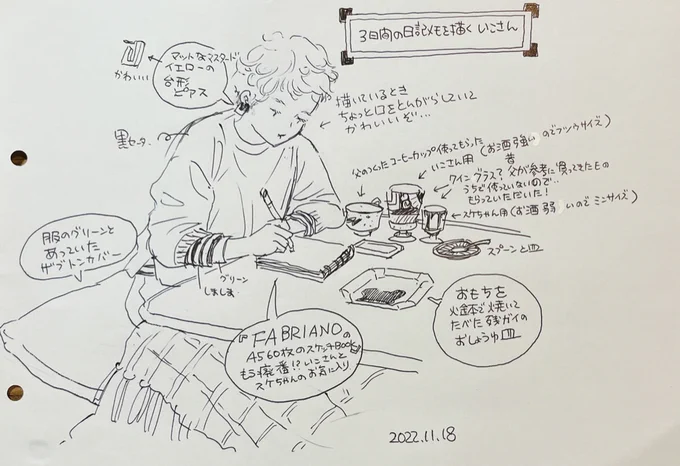 3日間の日記メモを描く いこさん
マットなマスタード
イエローの
台形
ピアス
かわいい
描いているとき
ちょっと口をとんがらしていて
かわいいぞ…
黒セーター
父のつくったコーヒーカップ使ってもらった
いこさん用 (お酒強いのでフツウサイズ)
昔
ワイングラス?父が参考に買ってきたもの
うちで使っていないので…
もらっていただいた!
スケちゃん用(お酒弱いのでミニサイズ)
スプーンと皿
服のグリーンと
あっていた
ザブトンカバー
グリーン
しましま
おもちを
火鉢で焼いて
たべた残ガイの
おしょうゆ皿
『FABRIANOの
A5 60枚のスケッチBOOK』
もう廃番!?いこさんと
スケちゃんのお気に入り
2022.11.18